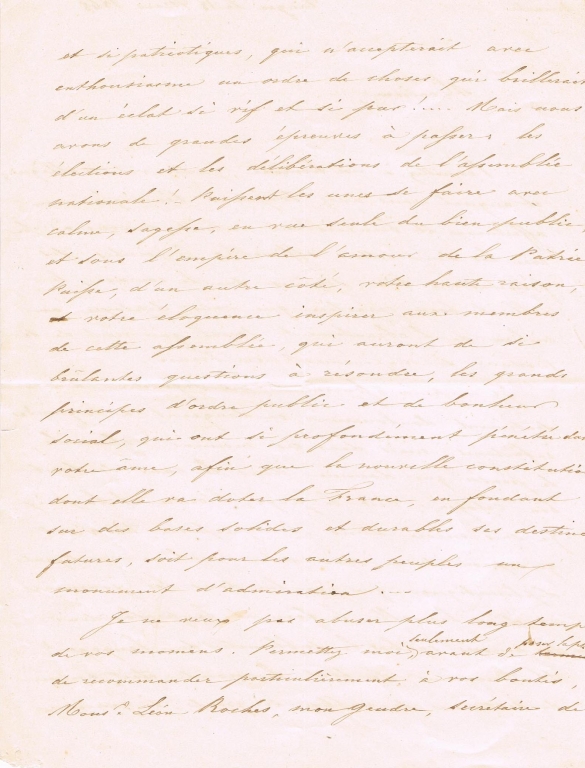 et si patriotiques, qui n'accepterait avec
enthousiasme un ordre de choses qui brillerait
d'un éclat si vif et si pur !... Mais nous
avons de grandes épreuves à passer : les
élections et les délibérations de l'assemblée
nationale ! Puissent les unes se faire avec
calme, sagesse, en vue seule du bien public,
et sous l'empire de l'amour de la Patrie
Puisse, d'un autre côté, votre haute raison,
votre éloquence inspirer aux membres
de cette assemblée, qui auront de si
brûlantes questions à résoudre, les grands
principes d'ordre public et de bonheur
social, qui ont si profondément pénétré
votre âme, afin que la nouvelle constitution
dont elle va doter la France, en fondant
sur des bases solides et durables ses
futures, soit pour les autres peuples un
monument d'admiration ...
Je ne veux pas abuser plus long-temps
de vos momens. Permettez moi seulement avant
de recommander particulièrement à vos bontés,
Mons.r Léon Roches, mon gendre, secrétaire de